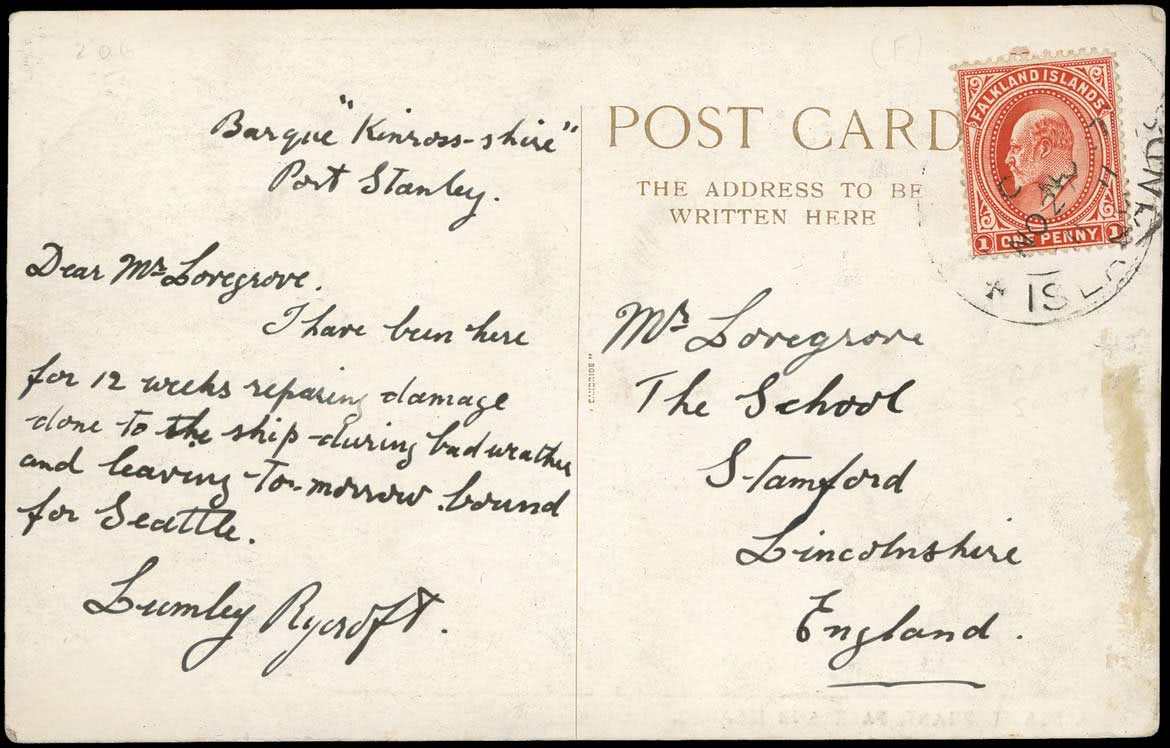 Barque "Kinross-shire"
Port Stanley.
Dear Mr Lovegrove.
I have been here
for 12 weeks reparing damage
done to the ship during bad weather
and leaving to-morrow bound
for Seattle.
Lumley Rycroft.
POST CARD
THE ADDRESS TO BE
WRITTEN HERE
FALKLAND ISLANDS
1 ONE PENNY 1
Mr Lovegrove
The School
Stamford
Lincolnshire
England.